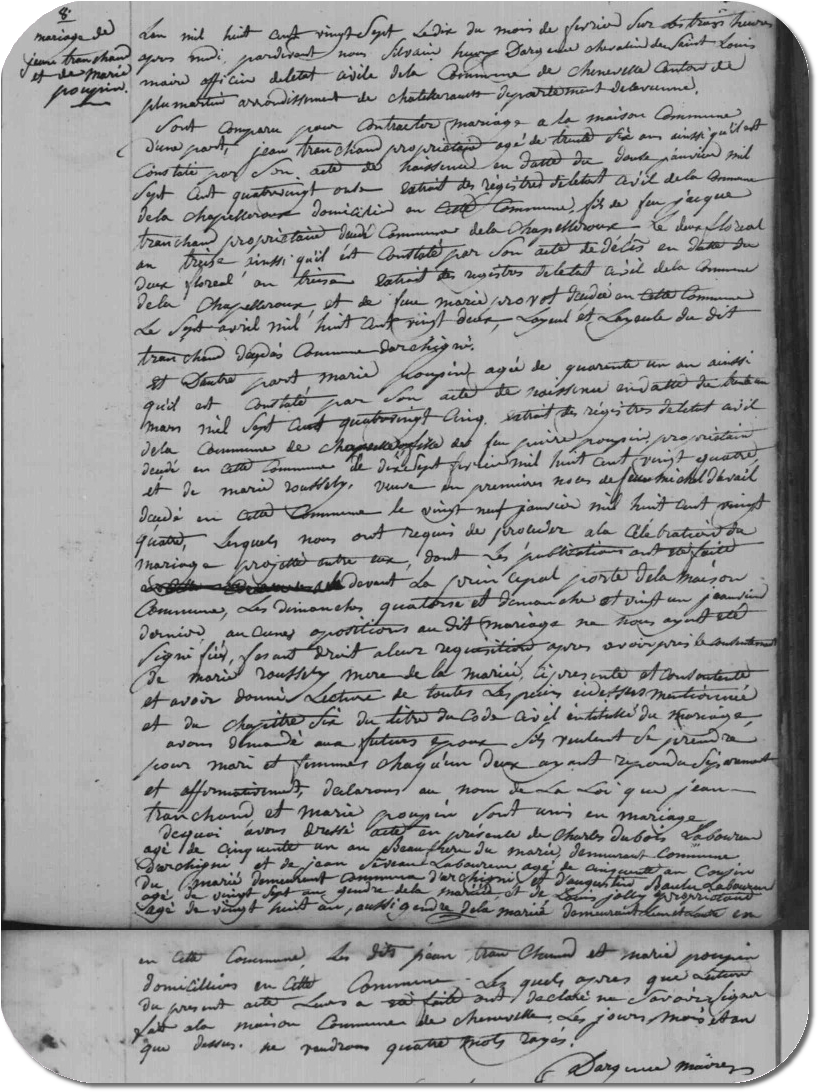 8e
mariage de
jean tranchand
et de marie
poupin.
Lan mil huit cent vingt sept Ledix du mois de fevrier sur les trois heures
apres midi, pardevant nous Silvain henry Dargence chevalier de Saint Louis
maire officier deletat civile dela Commune de chenevelle Canton de
plumartin arrondissement de chatelerault departement delavienne.
Sont Comparu pour Contracter mariage a la maison Commune
D'une part, jean tranchand propriétaire agé de trente six ans ainsi qu'il est
Constaté par Son acte de naissance en datte du douze janvier mil
Sept Cent quatrevingt onze Extrait des régistres deletat civil de la Commune
dela chapelleroux domicilié en Cette Commune, fils de feu jacque
tranchand propriétaire décédé Commune dela Chapelleroux Le deux floréal
an treize ainsi qu'il est Constaté par Son acte de décès en datte du
deux floreal an treize Extrait des registres deletat civil dela Commune
dela Chapelleroux, et de feue marie provot décédée en Cette Commune
Le Sept avril mil huit Cent vingt deux, Layeul et Layeule du dit
tranchand décédés Commune Darchigné.
Et Dautre part, marie poupin agée de quarente un an ainsi
qu'il est Constaté par Son acte de naissance en datte du
mars mil Sept Cent quatrevingt Cinq. Extrait des régistres deletat civil
dela Commune de fille de feu pierre poupin propriétaire
décédé en Cette Commune le dix Sept fevrier mil huit Cent vingt quatre,
et de marie roussely, veuve en premieres noces de feu michel davail
décédé en Cette Commune le vingt neuf janvier mil huit Cent vingt
quatre, Lesquels nous ont requis de proceder ala Célébration du
mariage projetté entre eux, dont Les publications ont été faite
devant La principal porte dela maison
Commune, Les dimanches quatorse et dimanche et vingt un janvier
dernier, aucunes opositions au dit mariage ne nous ayant été
Signifiées, fesant droit aleur requisition apres avoir pris le consentement
de marie roussely mere de la mariée, ci presente et consentente
et avoir donné Lecture de toutes Les pieces cidessus mentionnée
et du chapitre Six du titre du Code Civil intitulé du Mariage,
avons demandé aux futures epoux Sils veulent Se prendre
pour mari et femmes chaqu'un deux ayant repondu Séparement
et affirmativement, declarons au nom de La Loi que jean
tranchand et marie poupin Sont unis en mariage
dequoi avons dressé acte en présence de Charles dubois Laboureur
agé de cinquante un an Beaufrere du marié, demeurant Commune
Darchigné et de jean Laboureur agé de cinquante an Cousin
du marié demeurant Commune d'archigné et d'augustin Baulu Laboureur
agé de vingt Sept ans gendre dela mariée, et de Louis jolly propriétaire
agé de vingt huit an, aussi gendre dela mariée demeurant en
en Cette Commune, Les dits jean tranchand et marie poupin
domicilliées en Cette Commune. Lesquels apres que Lecture
du present acte Leurs a été faite ont déclaré ne Savoir Signer
fait ala maison Commune de chenevelle, Les jours, mois et an
que dessus. ne vaudrons quatre mots rayés.
Dargence maire